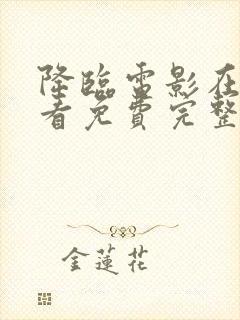 降臨電影在
看免費完整
金蓮花